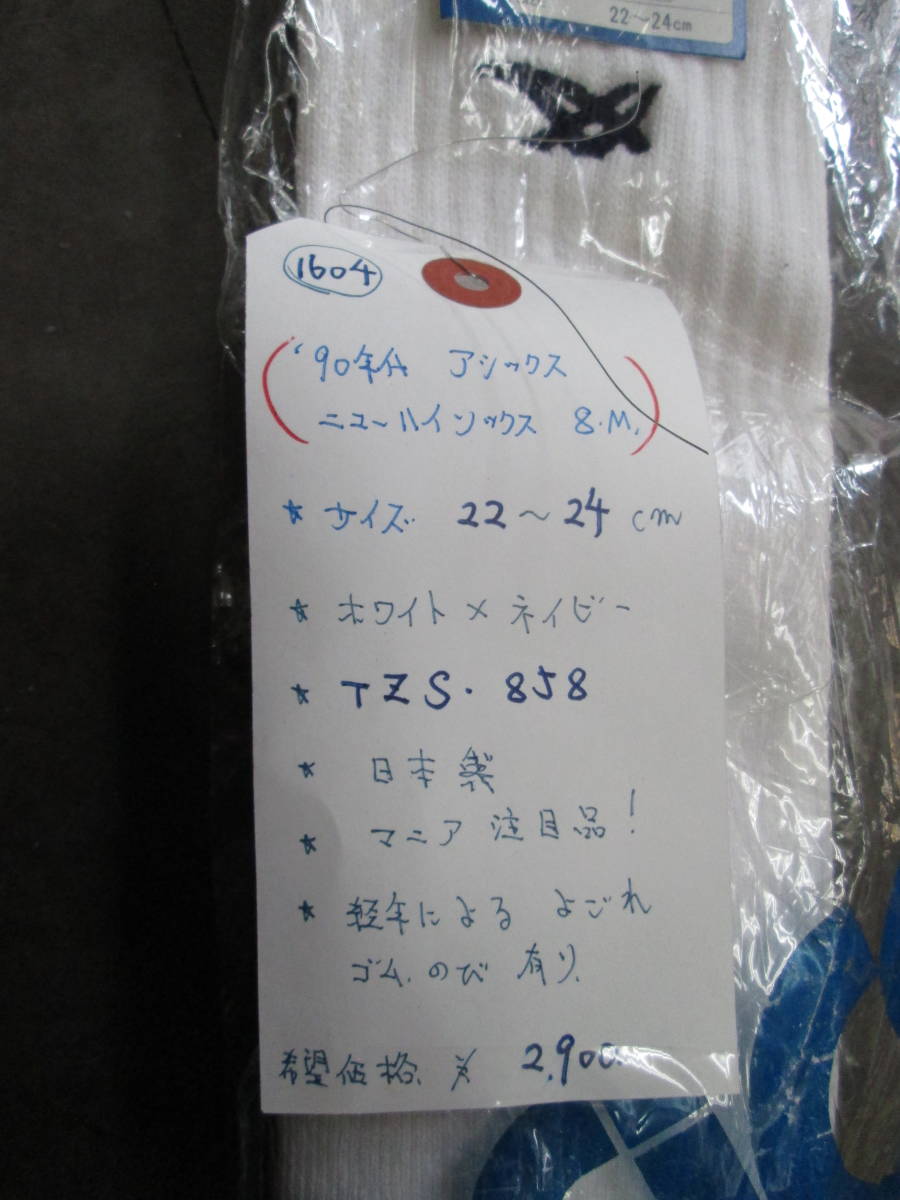 22～24cm
1604
'90年代 アシックス
ニューハイソックス 8.M.
★ サイズ 22～24 cm
★ ホワイト×ネイビー
★ TZS. 858
★ 日本製
★ マニア 注目品!
★ 経年による よごれ
ゴム.のび 有り.
希望価格. ¥ 2,900.